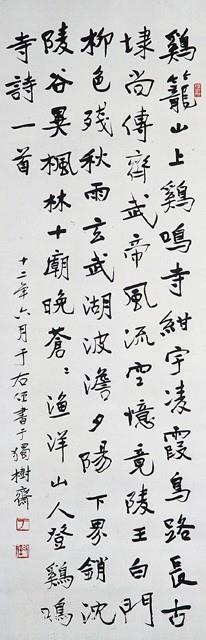 鷄籠山上鷄鳴寺紺宇凌霞鳥路長古
埭尚傳齊武帝風流空憶竟陵王白門
柳色殘秋雨玄武湖波澹夕陽下界銷沈
陵谷異楓林十廟晚蒼〻漁洋山人登鷄鳴
寺詩一首
十二年六月于右任書于獨樹齋